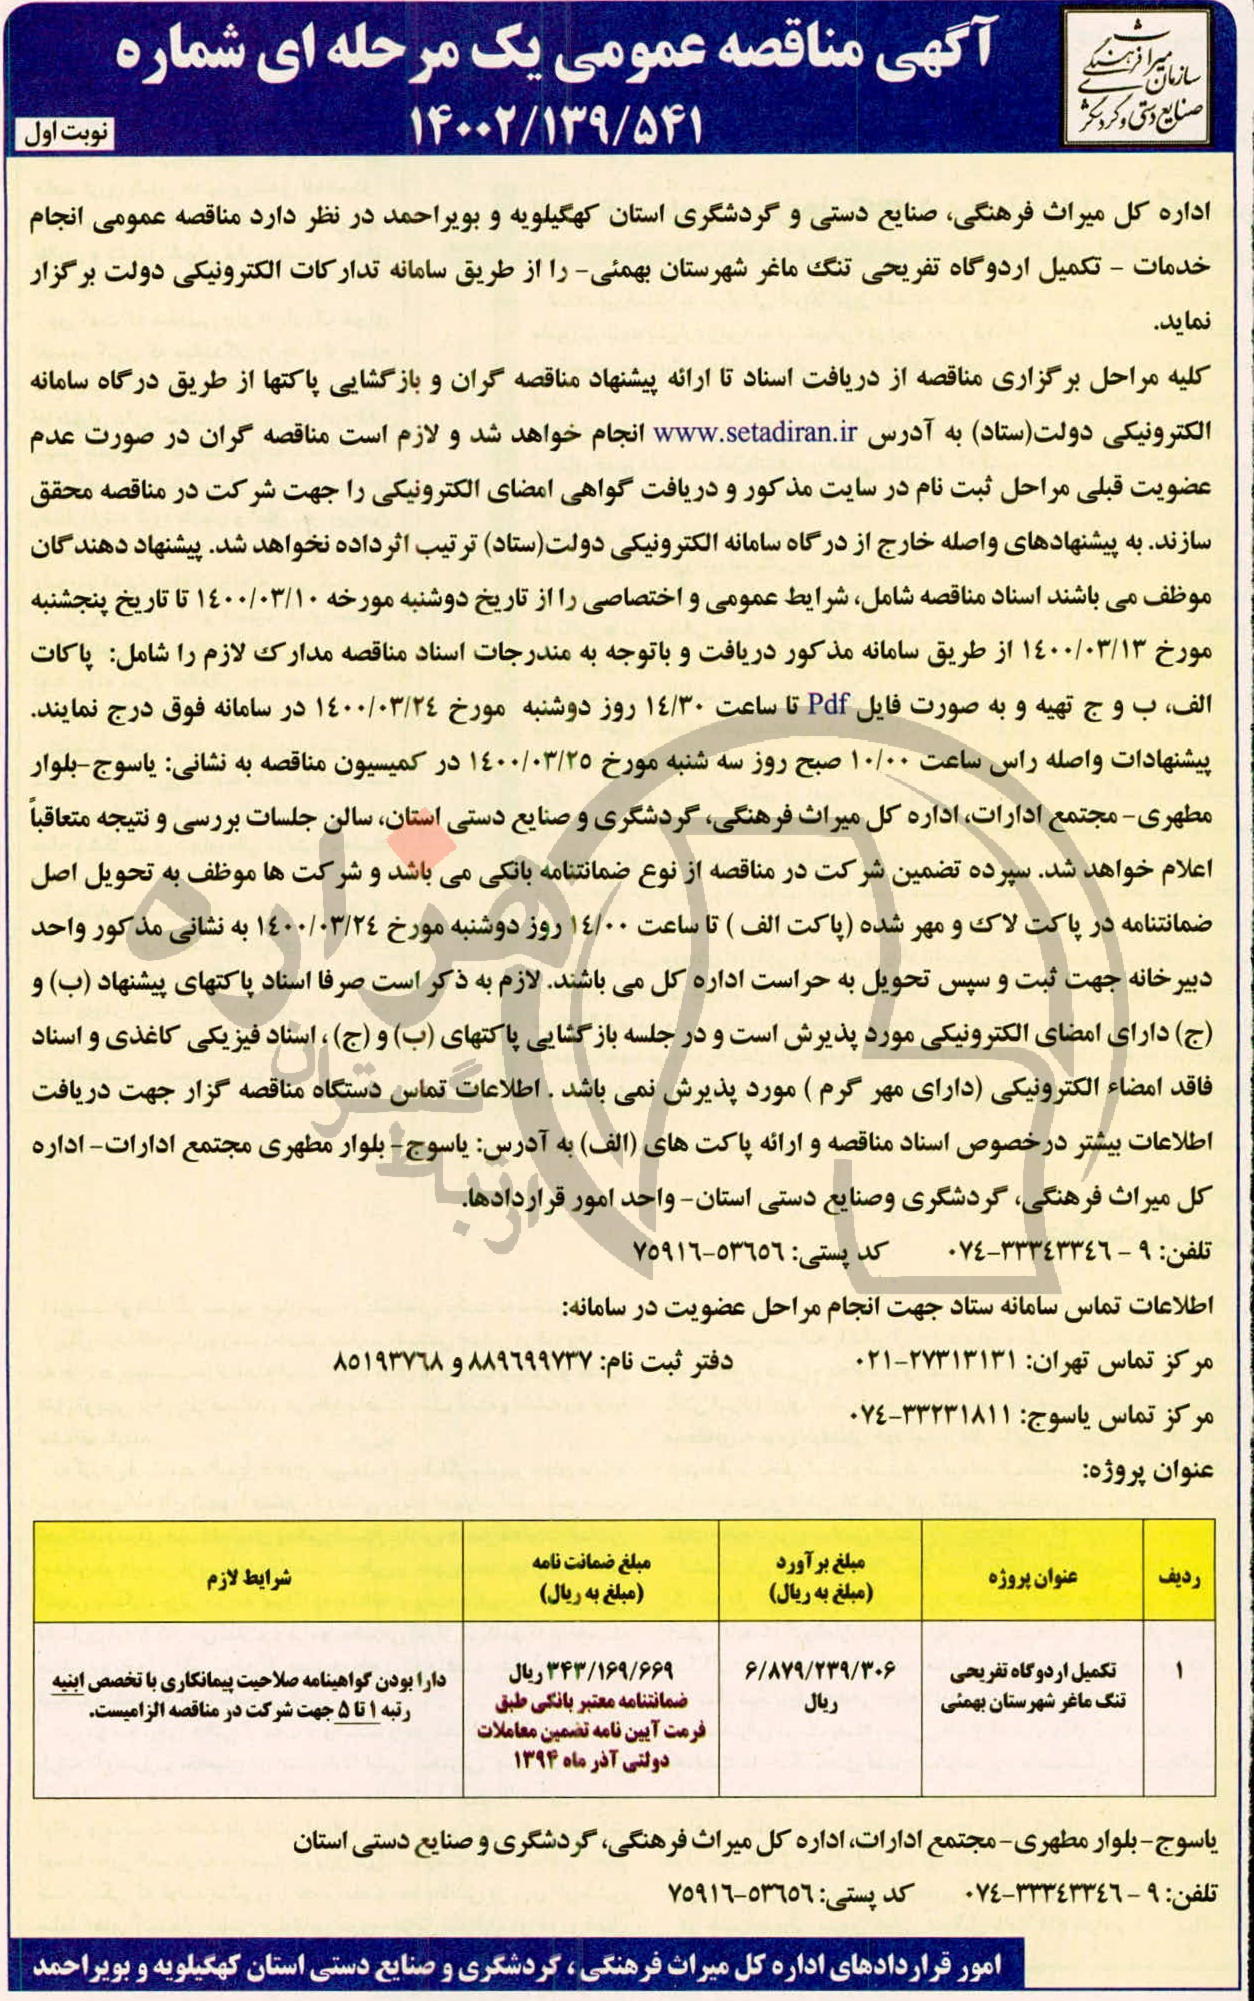 سازمان میراث فرهنگی
صنایع دستی و گردشگری
آگهی مناقصه عمومی یک مرحله ای شماره
۱۴۰۰۲/۱۳۹/۵۴۱
نوبت اول
اداره کل میراث فرهنگی، صنایع دستی و گردشگری استان کهگیلویه و بویراحمد در نظر دارد مناقصه عمومی انجام
خدمات - تکمیل اردوگاه تفریحی تنگ ماغر شهرستان بهمئی- را از طریق سامانه تدارکات الکترونیکی دولت برگزار
نماید.
کلیه مراحل برگزاری مناقصه از دریافت اسناد تا ارائه پیشنهاد مناقصه گران و بازگشایی پاکتها از طریق درگاه سامانه
الکترونیکی دولت(ستاد) به آدرس www.setadiran.ir انجام خواهد شد و لازم است مناقصه گران در صورت عدم
عضویت قبلی مراحل ثبت نام در سایت مذکور و دریافت گواهی امضای الکترونیکی را جهت شرکت در مناقصه محقق
سازند. به پیشنهادهای واصله خارج از درگاه سامانه الکترونیکی دولت(ستاد) ترتیب اثرداده نخواهد شد. پیشنهاد دهندگان
موظف می باشند اسناد مناقصه شامل، شرایط عمومی و اختصاصی را از تاریخ دوشنبه مورخه ۱٤۰۰/۰۳/۱۰ تا تاریخ پنجشنبه
مورخ ۱٤۰۰/۰۳/۱۳ از طریق سامانه مذکور دریافت و باتوجه به مندرجات اسناد مناقصه مدارک لازم را شامل: پاکات
الف، ب و ج تهیه و به صورت فایل Pdf تا ساعت ۱٤/۳۰ روز دوشنبه مورخ ۱٤۰۰/۰۳/۲٤ در سامانه فوق درج نمایند.
پیشنهادات واصله راس ساعت ۱۰/۰۰ صبح روز سه شنبه مورخ ۱٤۰۰/۰۳/۲۵ در کمیسیون مناقصه به نشانی: یاسوج-بلوار
مطهری- مجتمع ادارات، اداره کل میراث فرهنگی، گردشگری و صنایع دستی استان، سالن جلسات بررسی و نتیجه متعاقباً
اعلام خواهد شد. سپرده تضمین شرکت در مناقصه از نوع ضمانتنامه بانکی می باشد و شرکت ها موظف به تحویل اصل
ضمانتنامه در پاکت لاک و مهر شده (پاکت الف ) تا ساعت ۱٤/۰۰ روز دوشنبه مورخ ۱٤۰۰/۰۳/۲٤ به نشانی مذکور واحد
دبیرخانه جهت ثبت و سپس تحویل به حراست اداره کل می باشند. لازم به ذکر است صرفا اسناد پاکتهای پیشنهاد (ب) و
(ج) دارای امضای الکترونیکی مورد پذیرش است و در جلسه بازگشایی پاکتهای (ب) و (ج) ، اسناد فیزیکی کاغذی و اسناد
فاقد امضاء الکترونیکی (دارای مهر گرم ) مورد پذیرش نمی باشد . اطلاعات تماس دستگاه مناقصه گزار جهت دریافت
اطلاعات بیشتر درخصوص اسناد مناقصه و ارائه پاکت های (الف) به آدرس: یاسوج- بلوار مطهری مجتمع ادارات- اداره
کل میراث فرهنگی، گردشگری وصنایع دستی استان- واحد امور قراردادها.
تلفن: ۹ - ۳۳۳٤۳۳٤٦-۰۷٤ کد پستی: ۵۳٦۵٦-۷۵۹۱٦
اطلاعات تماس سامانه ستاد جهت انجام مراحل عضویت در سامانه:
مرکز تماس تهران: ۲۷۳۱۳۱۳۱-۰۲۱ دفتر ثبت نام: ۸۸۹٦۹۹۷۳۷ و ۸۵۱۹۳۷٦۸
مرکز تماس یاسوج: ۳۳۲۳۱۸۱۱-۰۷٤
عنوان پروژه:
ردیف
عنوان پروژه
مبلغ برآورد
(مبلغ به ریال)
مبلغ ضمانت نامه
(مبلغ به ریال)
شرایط لازم
۱
تکمیل اردوگاه تفریحی
تنگ ماغر شهرستان بهمئی
۶/۸۷۹/۲۳۹/۳۰۶
ریال
۳۴۳/۱۶۹/۶۶۹ ریال
ضمانتنامه معتبر بانکی طبق
فرمت آیین نامه تضمین معاملات
دولتی آذر ماه ۱۳۹۴
دارا بودن گواهینامه صلاحیت پیمانکاری با تخصص ابنیه
رتبه ۱ تا ۵ جهت شرکت در مناقصه الزامیست.
یاسوج- بلوار مطهری- مجتمع ادارات، اداره کل میراث فرهنگی، گردشگری و صنایع دستی استان
تلفن: ۹ - ۳۳۳٤۳۳٤٦-۰۷٤ کد پستی: ۵۳٦۵٦-۷۵۹۱٦
امور قراردادهای اداره کل میراث فرهنگی ، گردشگری و صنایع دستی استان کهگیلویه و بویراحمد
هزاره
ارتباط گستران